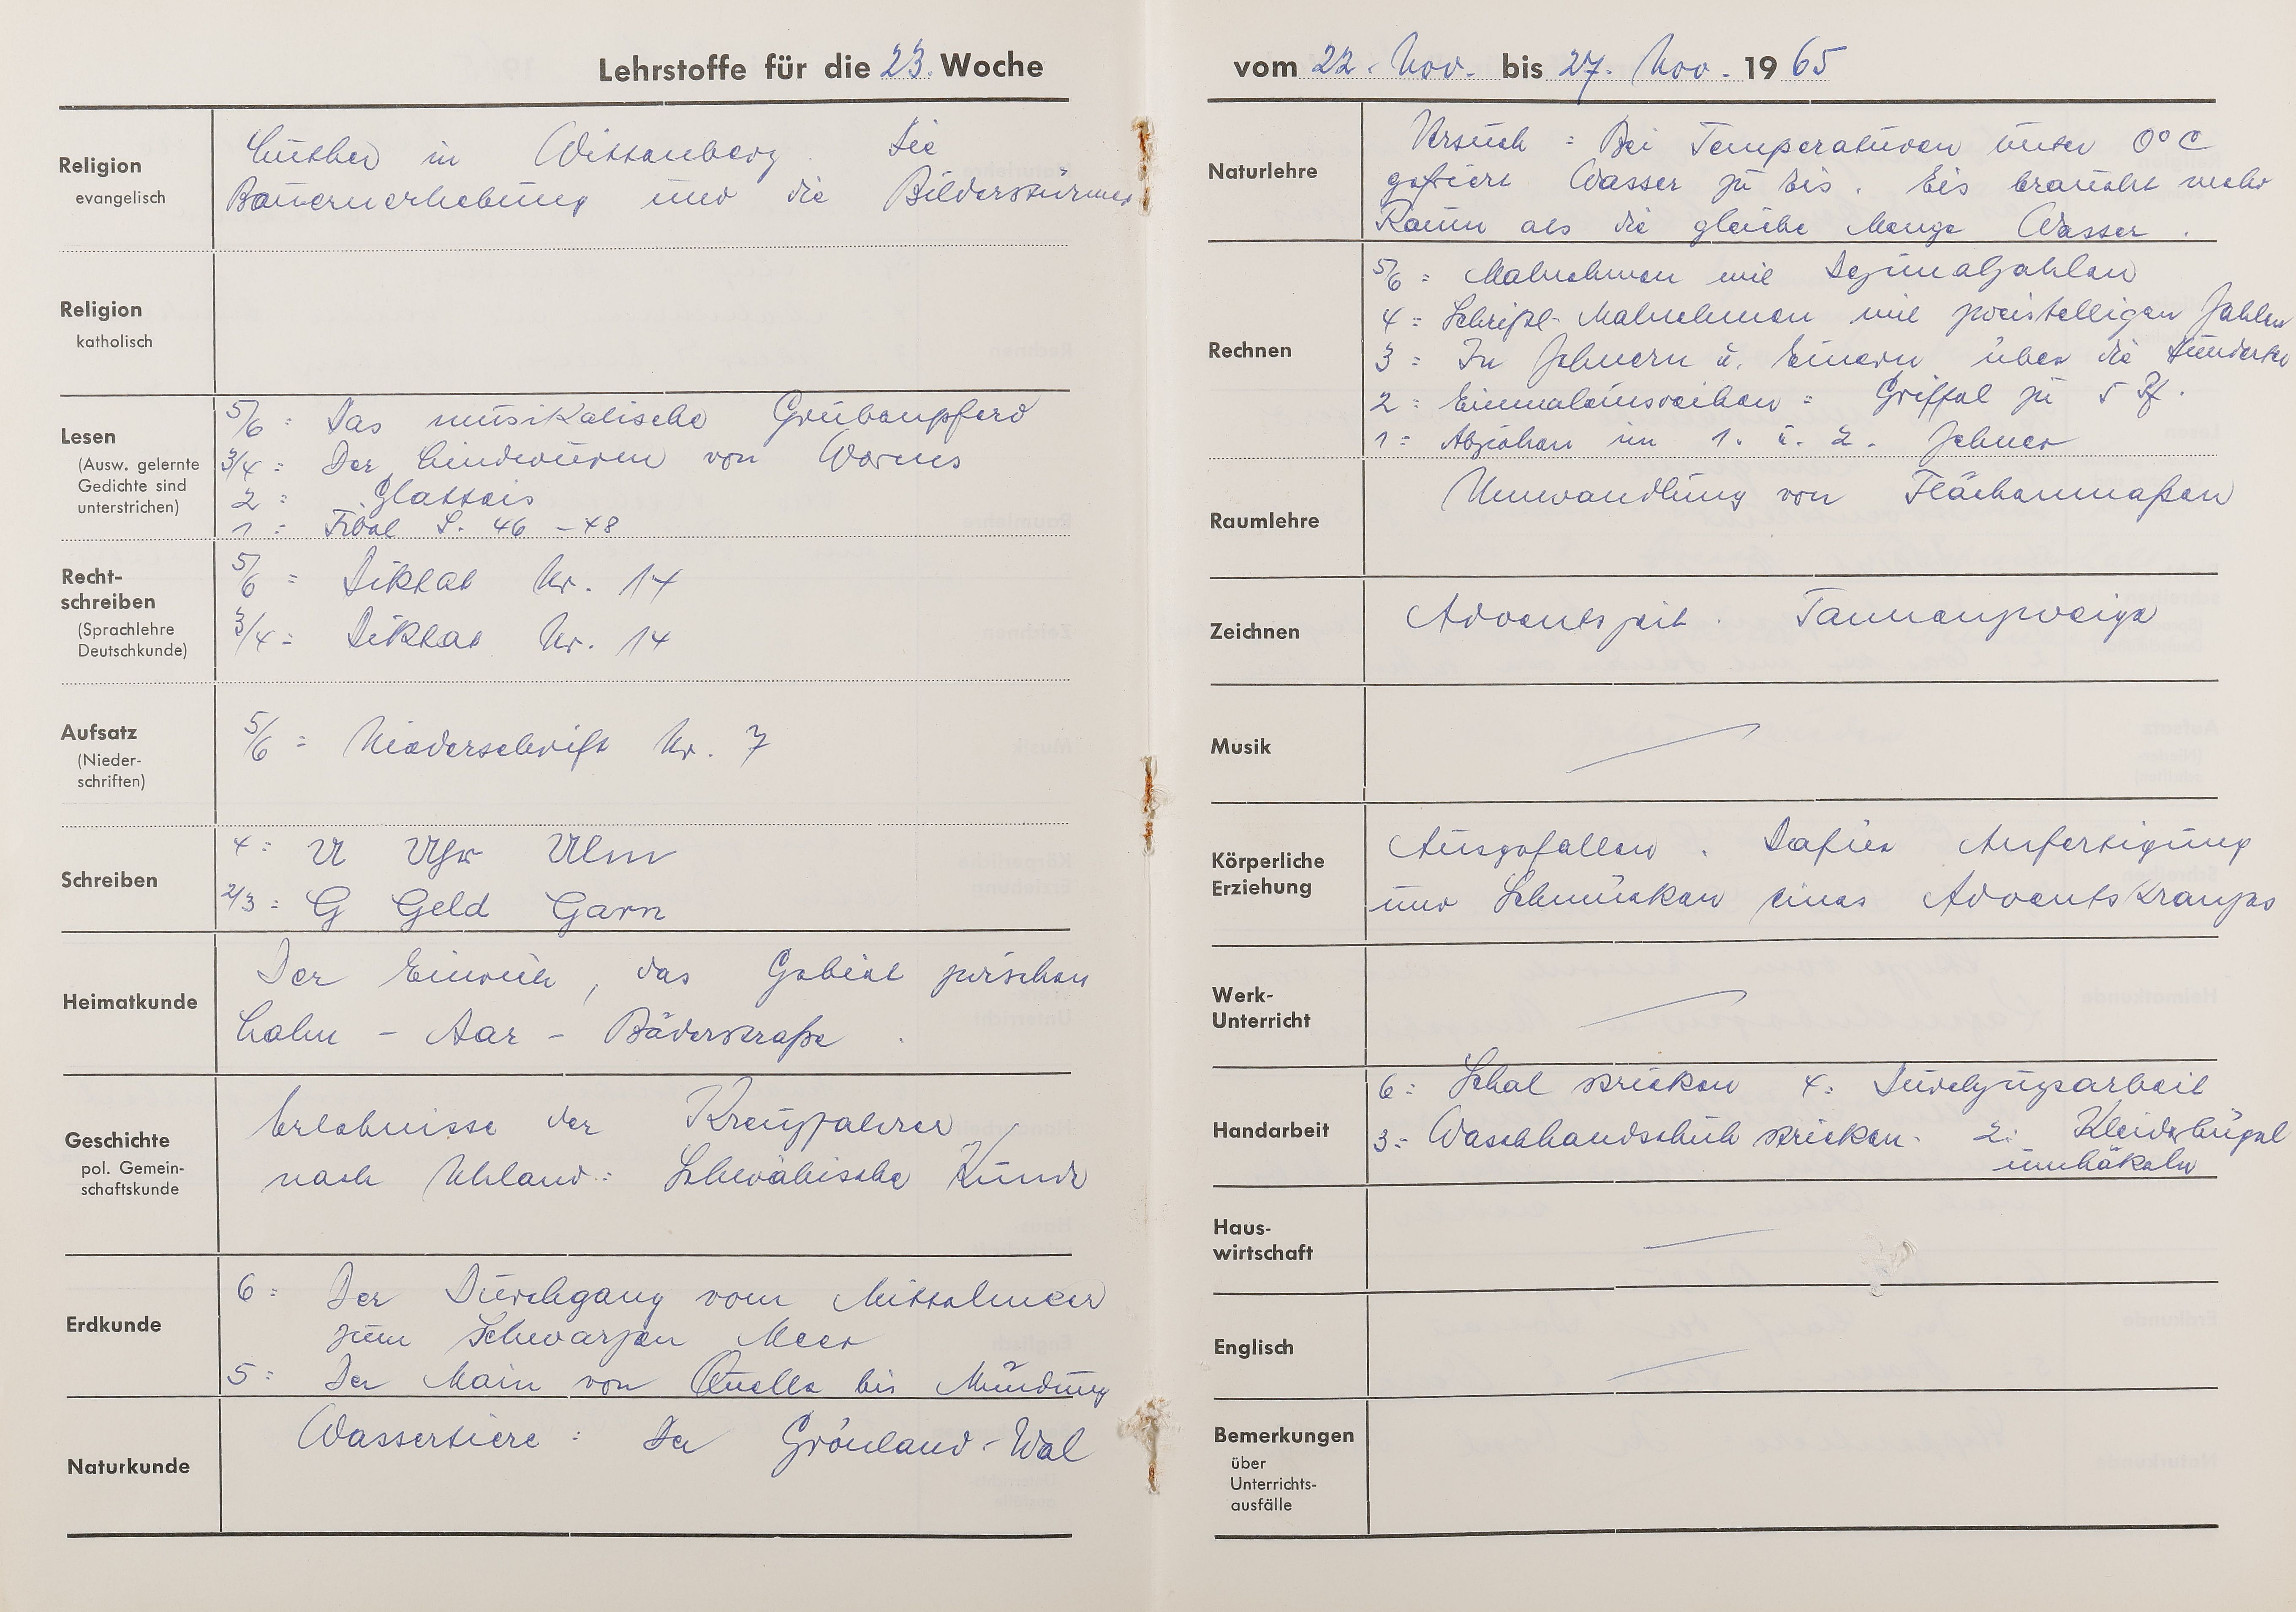 Lehrstoffe für die 23. Woche
Religion
evangelisch
Luther in Wittenberg. Die
Bauernerhebung und die Bilderstürmer
Religion
katholisch
Lesen
(Ausw. gelernte
Gedichte sind
unterstrichen)
5/6 = Das musikalische Grubenpferd
3/4 = Der Lindwurm von Worms
2 = Glatteis
1 = Fibel S. 46 - 48
Recht-
schreiben
(Sprachlehre
Deutschkunde)
5/6 = Diktat Nr. 14
3/4 = Diktat Nr. 14
Aufsatz
(Nieder-
schriften)
5/6 = Niederschrift Nr. 7
Schreiben
4 = U Uhr Ulm
2/3 = G Geld Garn
Heimatkunde
Der Einrich, das Gebiet zwischen
Lahn - Aar - Bäderstraße.
Geschichte
pol. Gemein-
schaftskunde
Erlebnisse der Kreuzfahrer
nach Uhland: Schwäbische Kunde
Erdkunde
6 = Der Durchgang vom Mittelmeer
zum Schwarzen Meer
5 = Der Main von Quelle bis Mündung
Naturkunde
Wassertiere: Der Grönland-Wal
vom 22. Nov. bis 27. Nov. 1965
Naturlehre
Versuch: Bei Temperaturen unter 0° C
gefriert Wasser zu Eis. Eis braucht mehr
Raum als die gleiche Menge Wasser.
Rechnen
5/6 = Malnehmen mit Dezimalzahlen
4 = Schriftl. Malnehmen mit zweistelligen Zahlen
3 = In Zehnern u. Einern über die Hunderter
2 = Einmaleinsreihen = Griffel zu 5 Pf.
1 = Abziehen im 1. u. 2. Zehner
Raumlehre
Umwandlung von Flächenmaßen
Zeichnen
Adventszeit. Tannenzweige
Musik
Körperliche
Erziehung
Ausgefallen. Dafür Anfertigung
und Schmücken eines Adventskranzes
Werk-
Unterricht
Handarbeit
6 = Schal stricken 4: Durchzugsarbeit
3 = Waschhandschuh stricken. 2: Kleiderbügel
umhäkeln
Haus-
wirtschaft
Englisch
Bemerkungen
über
Unterrichts-
ausfälle